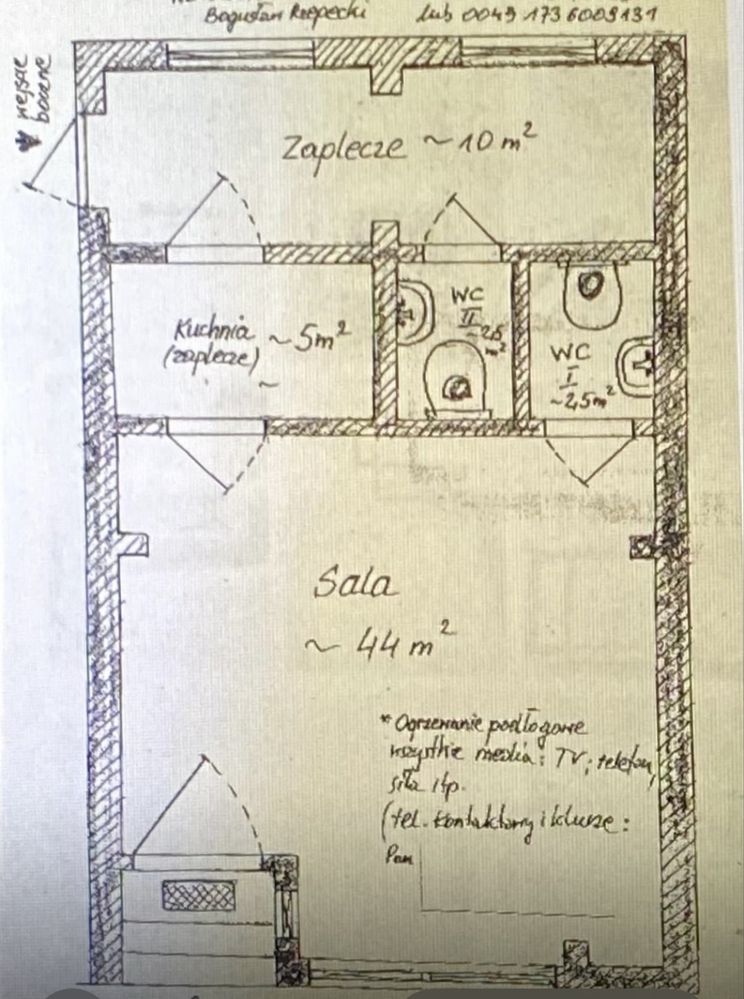 Bogusław Rzepecki lub 0049 173 6009131
wejście
boczne
Zaplecze ~10 m²
Kuchnia ~5m²
(zaplecze)
~
WC
II
~2,5
m²
WC
I
~2,5m²
Sala
~ 44 m²
* Ogrzewanie podłogowe
wszystkie media: TV; telefon,
siła itp.
(tel. kontaktowy i klucze:
Pan